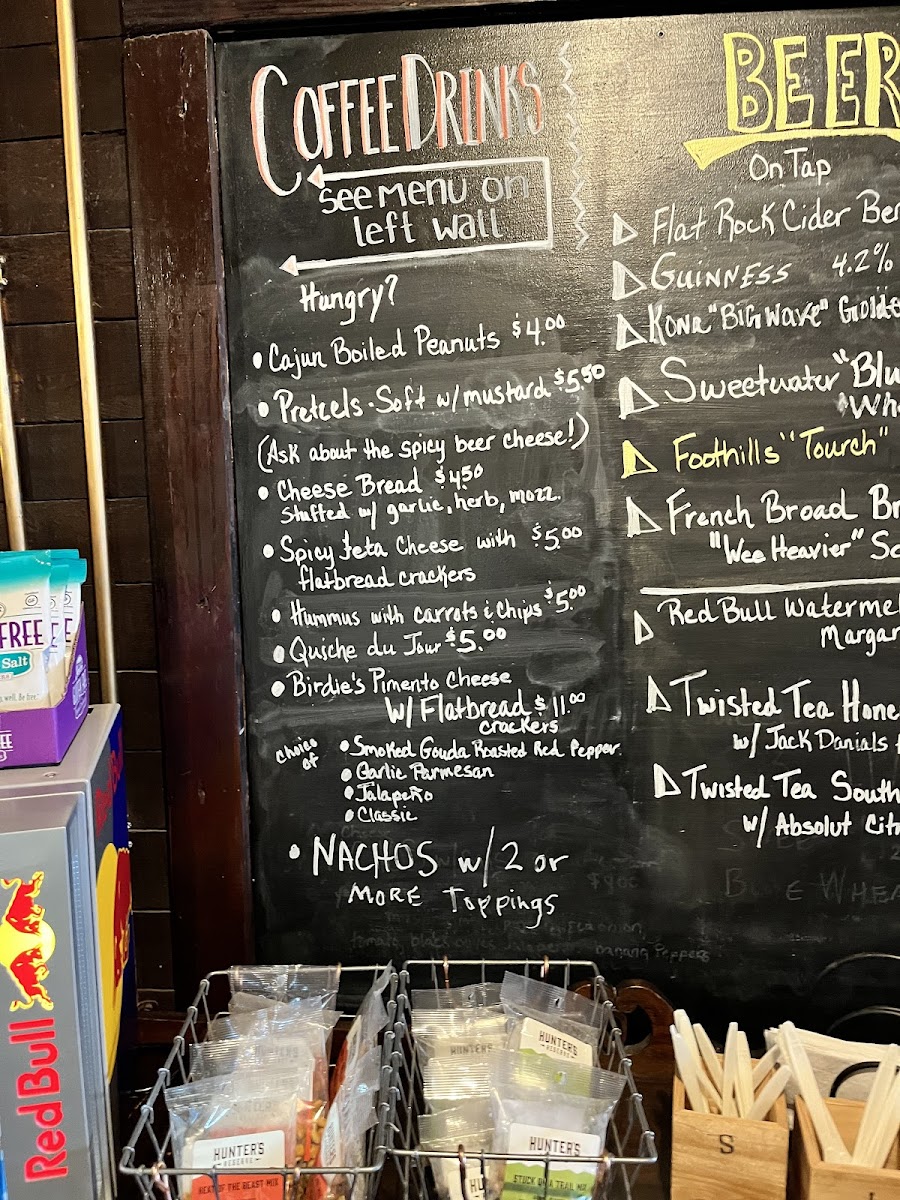 COFFEE DRINKS
See menu on
left wall
Hungry?
• Cajun Boiled Peanuts $4.00
• Pretzels - Soft w/ mustard $5.50
(Ask about the spicy beer cheese!)
• Cheese Bread $4.50
Stuffed w/ garlic, herb, mozz.
• Spicy feta Cheese with $5.00
flatbread crackers
• Hummus with carrots & chips $5.00
• Quiche du Jour $5.00
• Birdie's Pimento Cheese
w/ Flatbread $11.00
crackers
choice
of
• Smoked Gouda Roasted Red Pepper
• Garlic Parmesan
• Jalapeño
• Classic
• NACHOS w/ 2 or
MORE Toppings
banana Peppers
BEER
On Tap
Flat Rock Cider Ber
GUINNESS 4.2%
Kona "BIG WAVE" Golde
Sweetwater "Blu
Wh
Foothills "Tourch"
French Broad Br
"Wee Heavier" Sc
Red Bull Waterme
Margar
Twisted Tea Hone
w/ Jack Danials
Twisted Tea South
w/ Absolut Cit
FREE
Salt
Red Bull
HUNTER'S
RESERVE
HEAT OF THE BEAST MIX
HUNTER'S
HUNTER'S
RESERVE
HUNTER'S
RESERVE
STUCK ON A TRAIL MIX
S